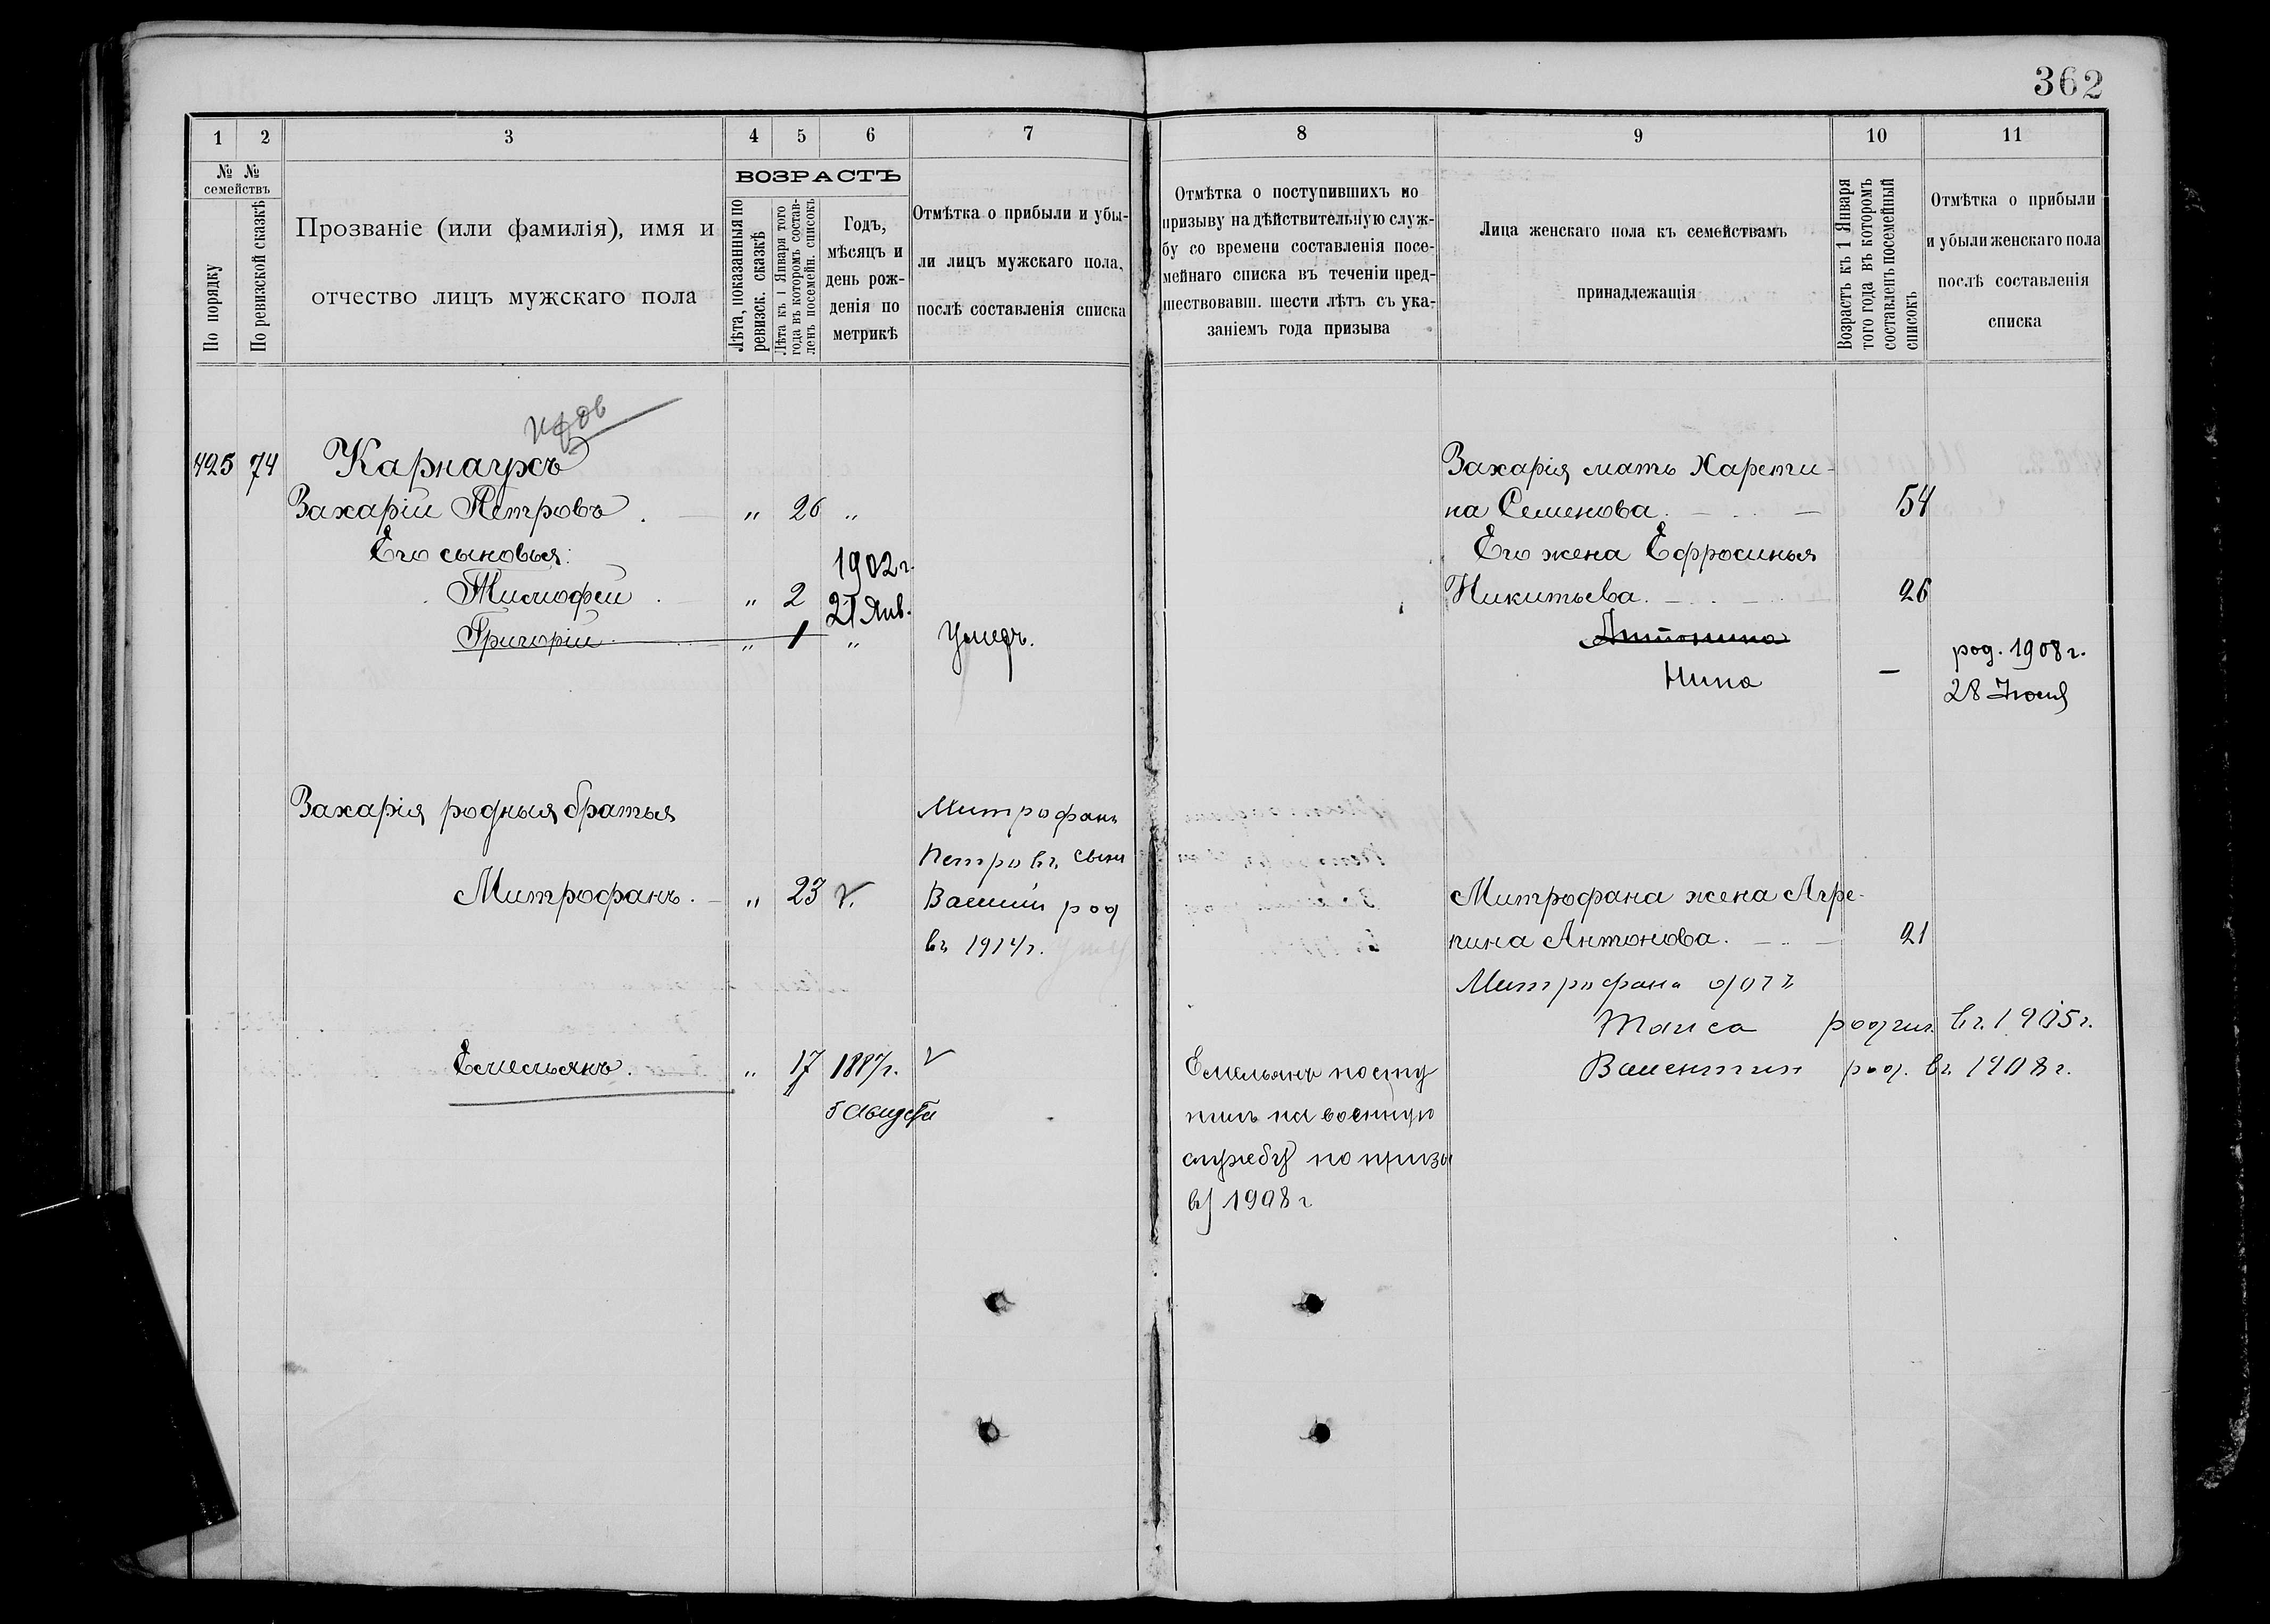 362
1 2 3 4 5 6 7
№ №
семействъ
По порядку
По ревизской сказкѣ
Прозваніе (или фамилія), имя и
отчество лицъ мужскаго пола
ВОЗРАСТЪ
Лѣта, показанныя по
ревизск. сказкѣ
Лѣта къ 1 Января того
года въ которомъ состав-
ленъ посемейн. списокъ
Годъ,
мѣсяцъ и
день рож-
денія по
метрикѣ
Отмѣтка о прибыли и убы-
ли лицъ мужскаго пола,
послѣ составленія списка
425 74 Карнаухъ
Захарій Петровъ. „ 26 „
Его сыновья:
1902 г.
Тимофей „ 2 21 Янв.
Григорій „ 1 „ Умеръ.
Захарія родныя братья
Митрофанъ
Петровъ сынъ
Митрофанъ. „ 23 Василій род
въ 1914 г.
Емельянъ. „ 17 1887 г.
5 Августа
8 9 10 11
Отмѣтка о поступившихъ по
призыву на дѣйствительную служ-
бу со времени составленія посе-
мейнаго списка въ теченіи пред-
шествовавш. шести лѣтъ съ ука-
заніемъ года призыва
Лица женскаго пола къ семействамъ
принадлежащія
Возрастъ къ 1 Января
того года въ которомъ
составленъ посемейный
списокъ
Отмѣтка о прибыли
и убыли женскаго пола
послѣ составленія
списка
Захарія мать Харети-
на Семенова. 54
Его жена Ефросинья
Никитьева. 26
Антонина
род. 1908 г.
Нина —
28 Июня
Митрофана жена Агре-
пина Антонова. 21
Митрофана дочь
Таиса родил. въ 1905 г.
Валентин род. въ 1908 г.
Емельянъ посту
пилъ на военную
службу по призы
ву 1908 г